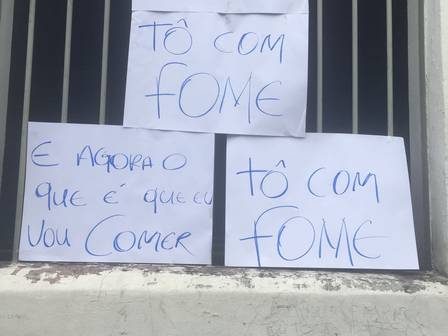 TÔ COM
FOME
E AGORA O
QUE É QUE EU
VOU COMER
TÔ COM
FOME